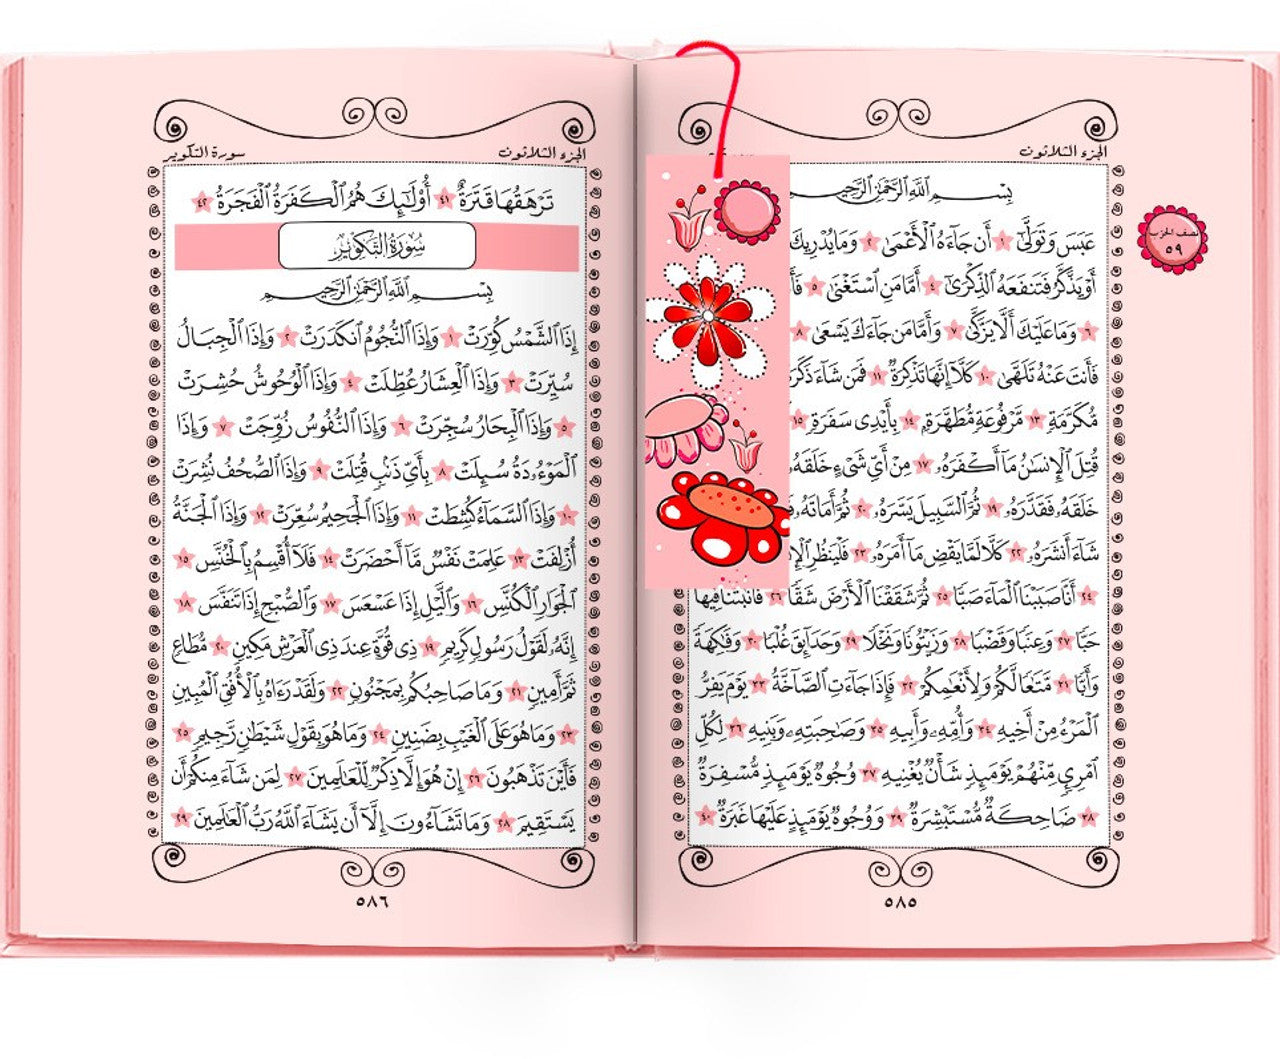 الجزء الثلاثون
بِسْمِ ٱللَّهِ ٱلرَّحْمَٰنِ ٱلرَّحِيمِ
عَبَسَ وَتَوَلَّىٰٓ ١ أَن جَآءَهُ ٱلْأَعْمَىٰ ٢ وَمَا يُدْرِيكَ
نصف الحزب
٥٩
أَوْ يَذَّكَّرُ فَتَنفَعَهُ ٱلذِّكْرَىٰٓ ٤ أَمَّا مَنِ ٱسْتَغْنَىٰ ٥
٦ وَمَا عَلَيْكَ أَلَّا يَزَّكَّىٰ ٧ وَأَمَّا مَن جَآءَكَ يَسْعَىٰ ٨
فَأَنتَ عَنْهُ تَلَهَّىٰ ١٠ كَلَّآ إِنَّهَا تَذْكِرَةٌ ١١ فَمَن شَآءَ ذَكَرَ
مُّكَرَّمَةٍ ١٣ مَّرْفُوعَةٍ مُّطَهَّرَةٍۭ ١٤ بِأَيْدِى سَفَرَةٍ ١٥
قُتِلَ ٱلْإِنسَٰنُ مَآ أَكْفَرَهُۥ ١٧ مِنْ أَىِّ شَىْءٍ خَلَقَهُۥ
خَلَقَهُۥ فَقَدَّرَهُۥ ١٩ ثُمَّ ٱلسَّبِيلَ يَسَّرَهُۥ ٢٠ ثُمَّ أَمَاتَهُۥ
شَآءَ أَنشَرَهُۥ ٢٢ كَلَّا لَمَّا يَقْضِ مَآ أَمَرَهُۥ ٢٣ فَلْيَنظُرِ
٢٤ أَنَّا صَبَبْنَا ٱلْمَآءَ صَبًّا ٢٥ ثُمَّ شَقَقْنَا ٱلْأَرْضَ شَقًّا ٢٦ فَأَنۢبَتْنَا فِيهَا
حَبًّا ٢٧ وَعِنَبًا وَقَضْبًا ٢٨ وَزَيْتُونًا وَنَخْلًا ٢٩ وَحَدَآئِقَ غُلْبًا ٣٠ وَفَٰكِهَةً
وَأَبًّا ٣١ مَّتَٰعًا لَّكُمْ وَلِأَنْعَٰمِكُمْ ٣٢ فَإِذَا جَآءَتِ ٱلصَّآخَّةُ ٣٣ يَوْمَ يَفِرُّ
ٱلْمَرْءُ مِنْ أَخِيهِ ٣٤ وَأُمِّهِۦ وَأَبِيهِ ٣٥ وَصَٰحِبَتِهِۦ وَبَنِيهِ ٣٦ لِكُلِّ
ٱمْرِئٍ مِّنْهُمْ يَوْمَئِذٍ شَأْنٌ يُغْنِيهِ ٣٧ وُجُوهٌ يَوْمَئِذٍ مُّسْفِرَةٌ
٣٨ ضَاحِكَةٌ مُّسْتَبْشِرَةٌ ٣٩ وَوُجُوهٌ يَوْمَئِذٍ عَلَيْهَا غَبَرَةٌ ٤٠
٥٨٥
الجزء الثلاثون
سورة التكوير
تَرْهَقُهَا قَتَرَةٌ ٤١ أُو۟لَٰٓئِكَ هُمُ ٱلْكَفَرَةُ ٱلْفَجَرَةُ ٤٢
سُورَةُ التَّكْوِيرِ
بِسْمِ ٱللَّهِ ٱلرَّحْمَٰنِ ٱلرَّحِيمِ
إِذَا ٱلشَّمْسُ كُوِّرَتْ ١ وَإِذَا ٱلنُّجُومُ ٱنكَدَرَتْ ٢ وَإِذَا ٱلْجِبَالُ
سُيِّرَتْ ٣ وَإِذَا ٱلْعِشَارُ عُطِّلَتْ ٤ وَإِذَا ٱلْوُحُوشُ حُشِرَتْ
٥ وَإِذَا ٱلْبِحَارُ سُجِّرَتْ ٦ وَإِذَا ٱلنُّفُوسُ زُوِّجَتْ ٧ وَإِذَا
ٱلْمَوْءُۥدَةُ سُئِلَتْ ٨ بِأَىِّ ذَنۢبٍ قُتِلَتْ ٩ وَإِذَا ٱلصُّحُفُ نُشِرَتْ
١٠ وَإِذَا ٱلسَّمَآءُ كُشِطَتْ ١١ وَإِذَا ٱلْجَحِيمُ سُعِّرَتْ ١٢ وَإِذَا ٱلْجَنَّةُ
أُزْلِفَتْ ١٣ عَلِمَتْ نَفْسٌ مَّآ أَحْضَرَتْ ١٤ فَلَآ أُقْسِمُ بِٱلْخُنَّسِ ١٥
ٱلْجَوَارِ ٱلْكُنَّسِ ١٦ وَٱلَّيْلِ إِذَا عَسْعَسَ ١٧ وَٱلصُّبْحِ إِذَا تَنَفَّسَ ١٨
إِنَّهُۥ لَقَوْلُ رَسُولٍ كَرِيمٍ ١٩ ذِى قُوَّةٍ عِندَ ذِى ٱلْعَرْشِ مَكِينٍ ٢٠ مُّطَاعٍ
ثَمَّ أَمِينٍ ٢١ وَمَا صَاحِبُكُم بِمَجْنُونٍ ٢٢ وَلَقَدْ رَءَاهُ بِٱلْأُفُقِ ٱلْمُبِينِ
٢٣ وَمَا هُوَ عَلَى ٱلْغَيْبِ بِضَنِينٍ ٢٤ وَمَا هُوَ بِقَوْلِ شَيْطَٰنٍ رَّجِيمٍ ٢٥
فَأَيْنَ تَذْهَبُونَ ٢٦ إِنْ هُوَ إِلَّا ذِكْرٌ لِّلْعَٰلَمِينَ ٢٧ لِمَن شَآءَ مِنكُمْ أَن
يَسْتَقِيمَ ٢٨ وَمَا تَشَآءُونَ إِلَّآ أَن يَشَآءَ ٱللَّهُ رَبُّ ٱلْعَٰلَمِينَ ٢٩
٥٨٦